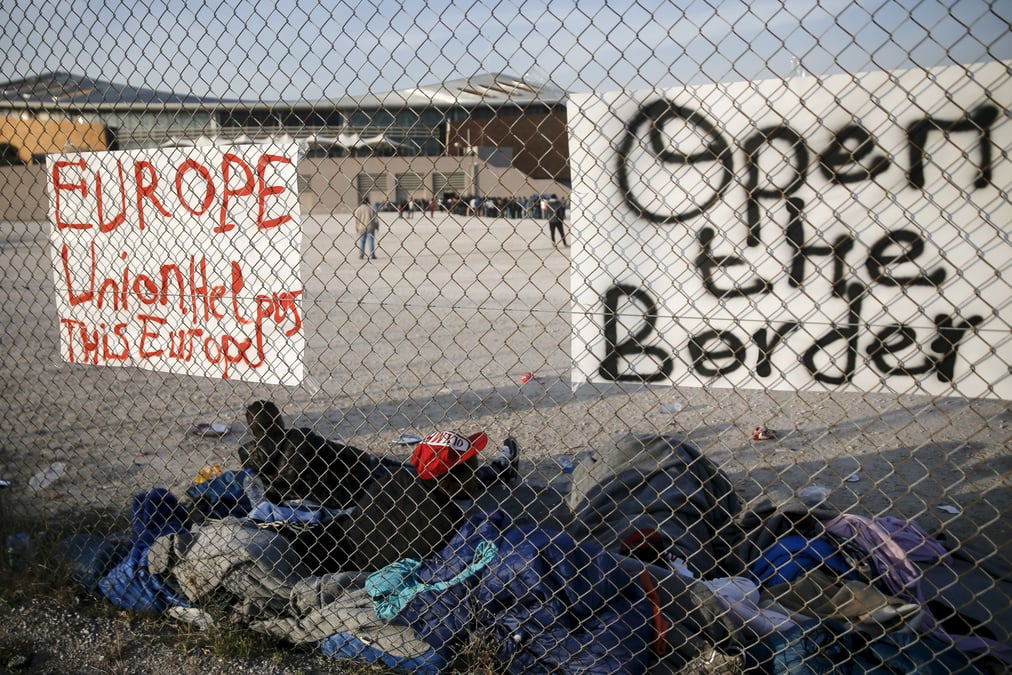 EUROPE
Union Help us
This Europ
Open
the
Border